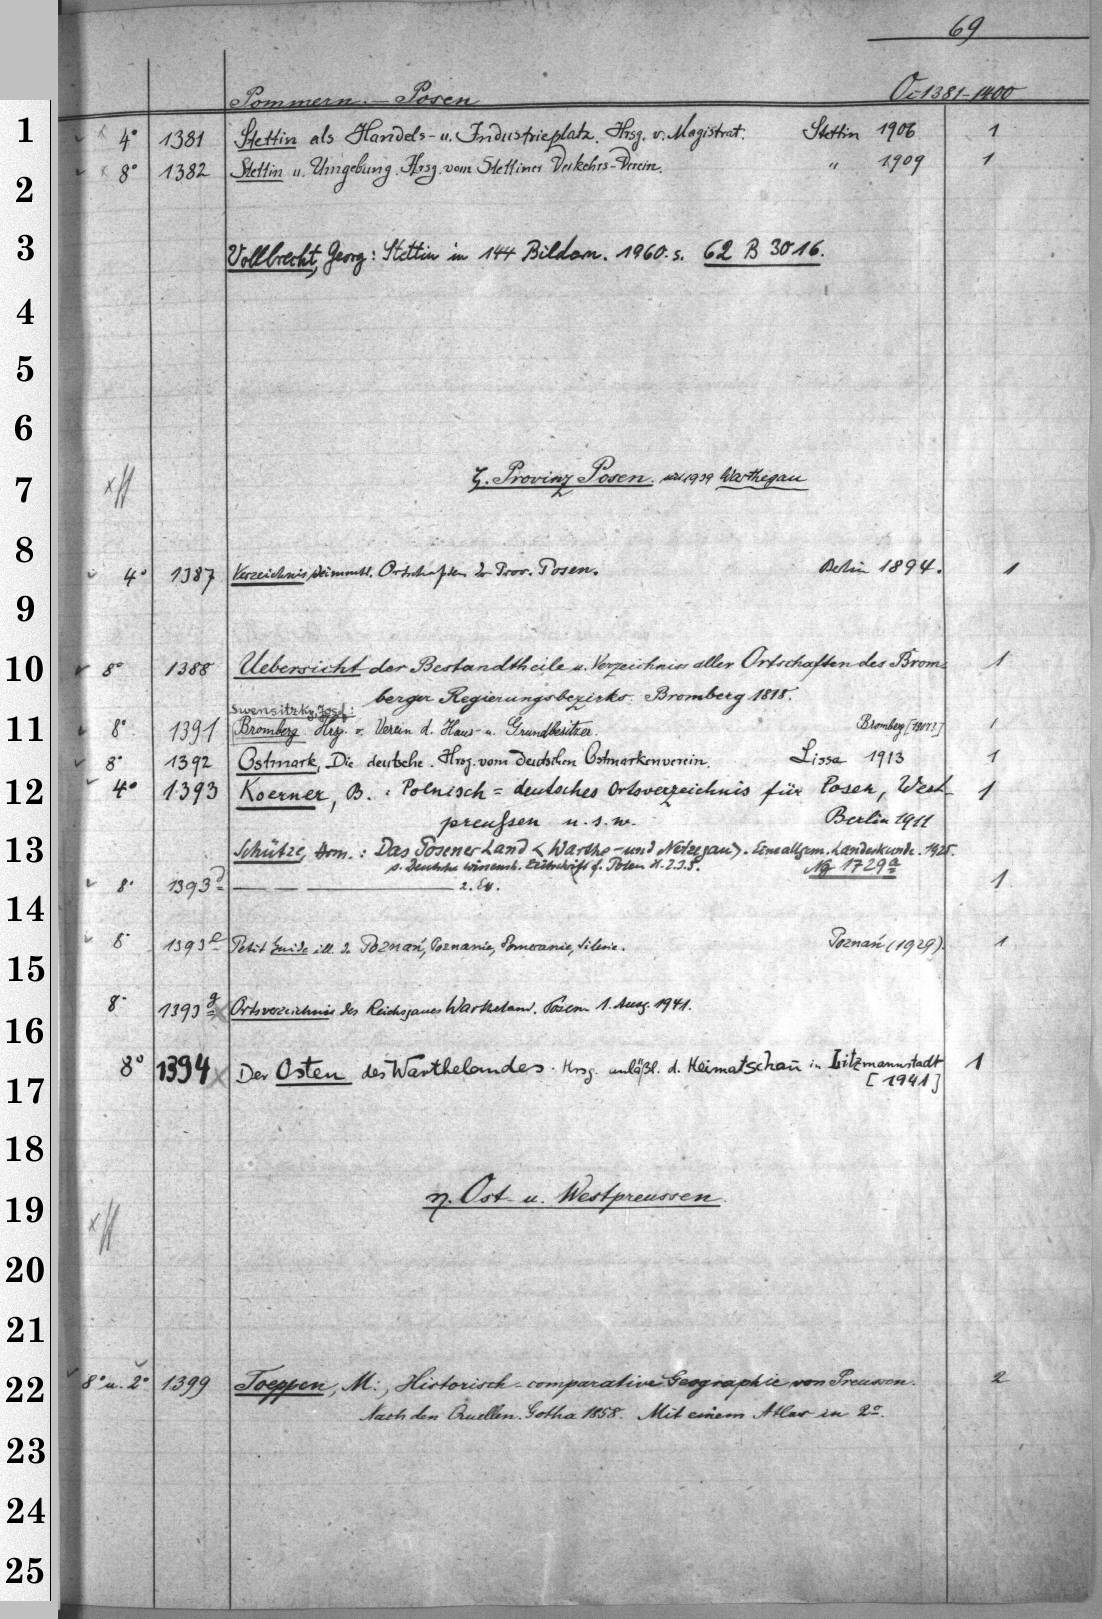 69
Pommern. - Posen Oc 1381-1400
1 4° 1381 Stettin als Handels- u. Industrieplatz. Hrsg. v. Magistrat. Stettin 1906 1
2 8° 1382 Stettin u. Umgebung. Hrsg. vom Stettiner Verkehrs-Verein. " 1909 1
3 Vollbrecht, Georg: Stettin in 144 Bildern. 1960. s. 62 B 3016.
4
5
6
7 ζ. Provinz Posen. seit 1939 Warthegau
8
4° 1387 Verzeichnis sämmtl. Ortschaften d. Prov. Posen. Berlin 1894. 1
9
10 8° 1388 Uebersicht der Bestandtheile u. Verzeichniss aller Ortschaften des Brom-
berger Regierungsbezirks. Bromberg 1818. 1
Swensitzky, Josef:
11 8° 1391 Bromberg Hrsg. v. Verein d. Haus- u. Grundbesitzer. Bromberg 1
8° 1392 Ostmark, Die deutsche. Hrsg. vom deutschen Ostmarkenverein. Lissa 1913 1
12 4° 1393 Koerner, B.: Polnisch=deutsches Ortsverzeichnis für Posen, West-
preußen u.s.w. Berlin 1911 1
13 Schütze, Herm.: Das Posener Land <Warthe- und Netzegau>. Eine allgem. Landeskunde. 1925.
s. Deutsche wissensch. Zeitschrift f. Polen H. 2.3.5. 1729a
8° 1393d — — — 2. Ex. 1
14
8° 1393e Petit Guide ill. de Poznań, Poznanie, Pomeranie, Silesie. Poznań (1929). 1
15
8° 1393g Ortsverzeichnis des Reichsgaues Wartheland. Posen 1. Aug. 1941.
16
8° 1394 Der Osten des Warthelandes. Hrsg. anläßl. d. Heimatschau in Litzmannstadt 1
17 [1941]
18
19 η. Ost- u. Westpreussen.
20
21
22 8° u. 2° 1399 Toeppen, M.: Historisch-comparative Geographie von Preussen. 2
Nach den Quellen. Gotha 1858. Mit einem Atlas in 2°.
23
24
25